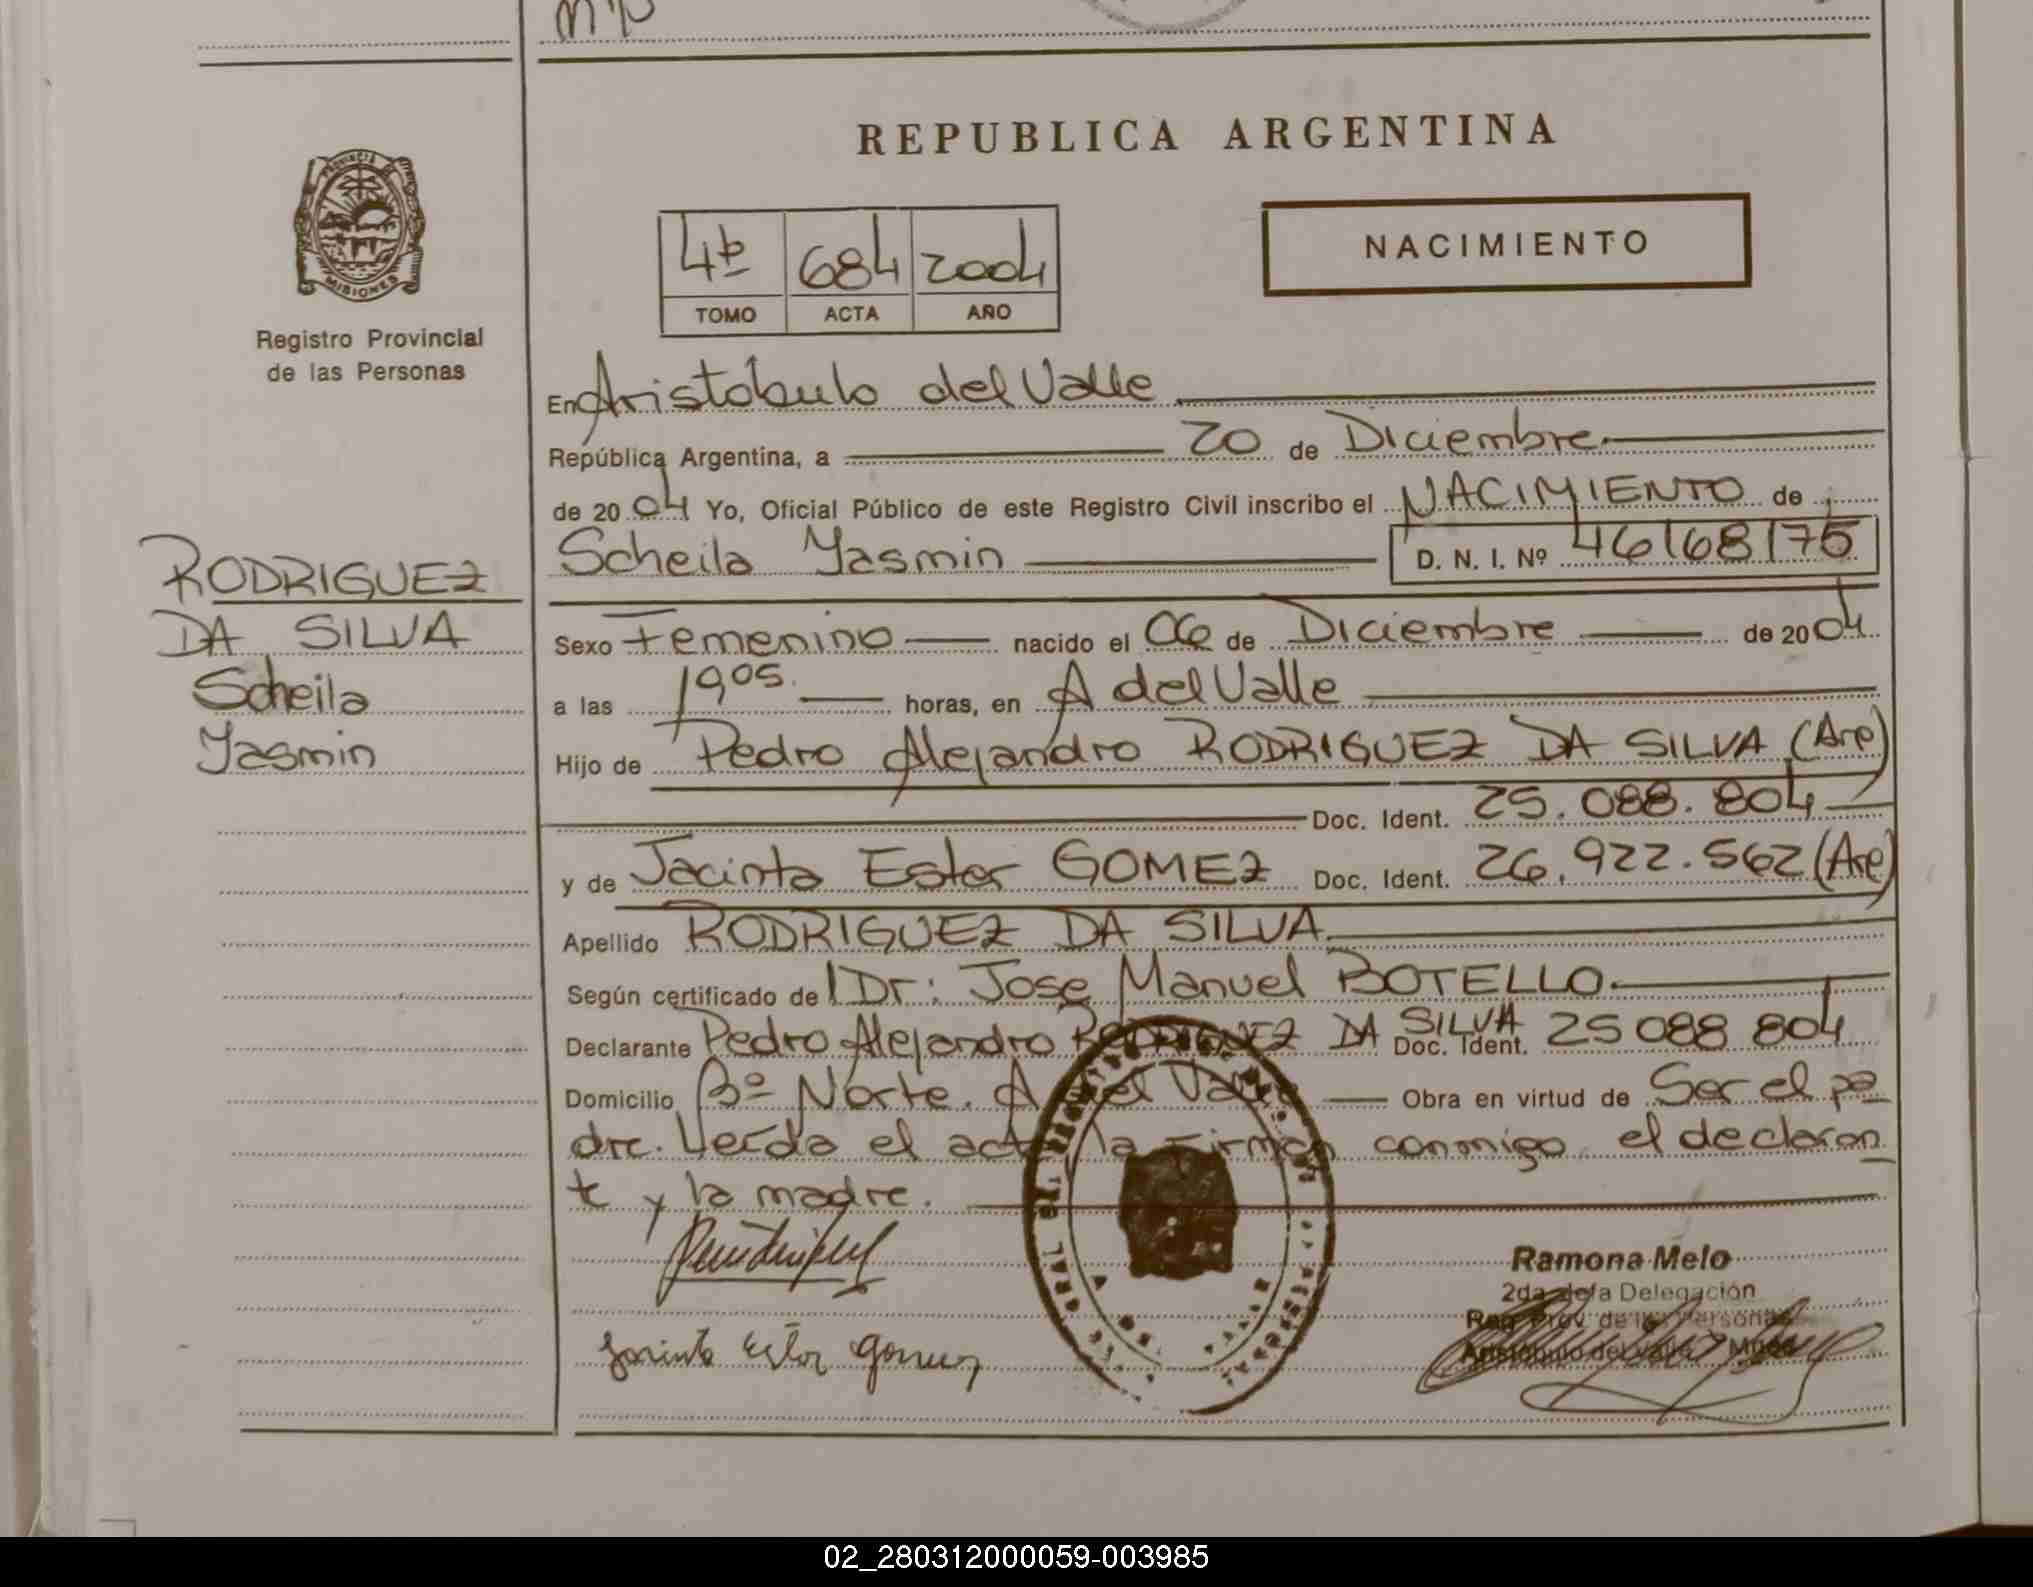 REPUBLICA ARGENTINA
PROVINCIA DE
MISIONES
Registro Provincial
de las Personas
4º 684 2004
TOMO ACTA AÑO
NACIMIENTO
En Aristóbulo del Valle
República Argentina, a 20 de Diciembre
de 2004 Yo, Oficial Público de este Registro Civil inscribo el NACIMIENTO de
Scheila Yasmin D. N. I. Nº 46168175
RODRIGUEZ
DA SILVA
Scheila
Yasmin
Sexo Femenino nacido el 06 de Diciembre de 2004
a las 19 05 horas, en A del Valle
Hijo de Pedro Alejandro RODRIGUEZ DA SILVA (Are)
Doc. Ident. 25.088.804
y de Jacinta Ester GOMEZ Doc. Ident. 26.922.562 (Are)
Apellido RODRIGUEZ DA SILVA
Según certificado de l Dr: Jose Manuel BOTELLO
Declarante Pedro Alejandro RODRIGUEZ DA SILVA Doc. Ident. 25 088 804
Domicilio Bº Norte. A del Valle Obra en virtud de Ser el pa
dre. Leída el acta la Firman conmigo, el declaran
te y la madre.
Ramona Melo
2da Jefa Delegación
Reg. Prov. de las Personas
Aristóbulo del Valle Mnes
Jacinta Ester Gomez
02_280312000059-003985